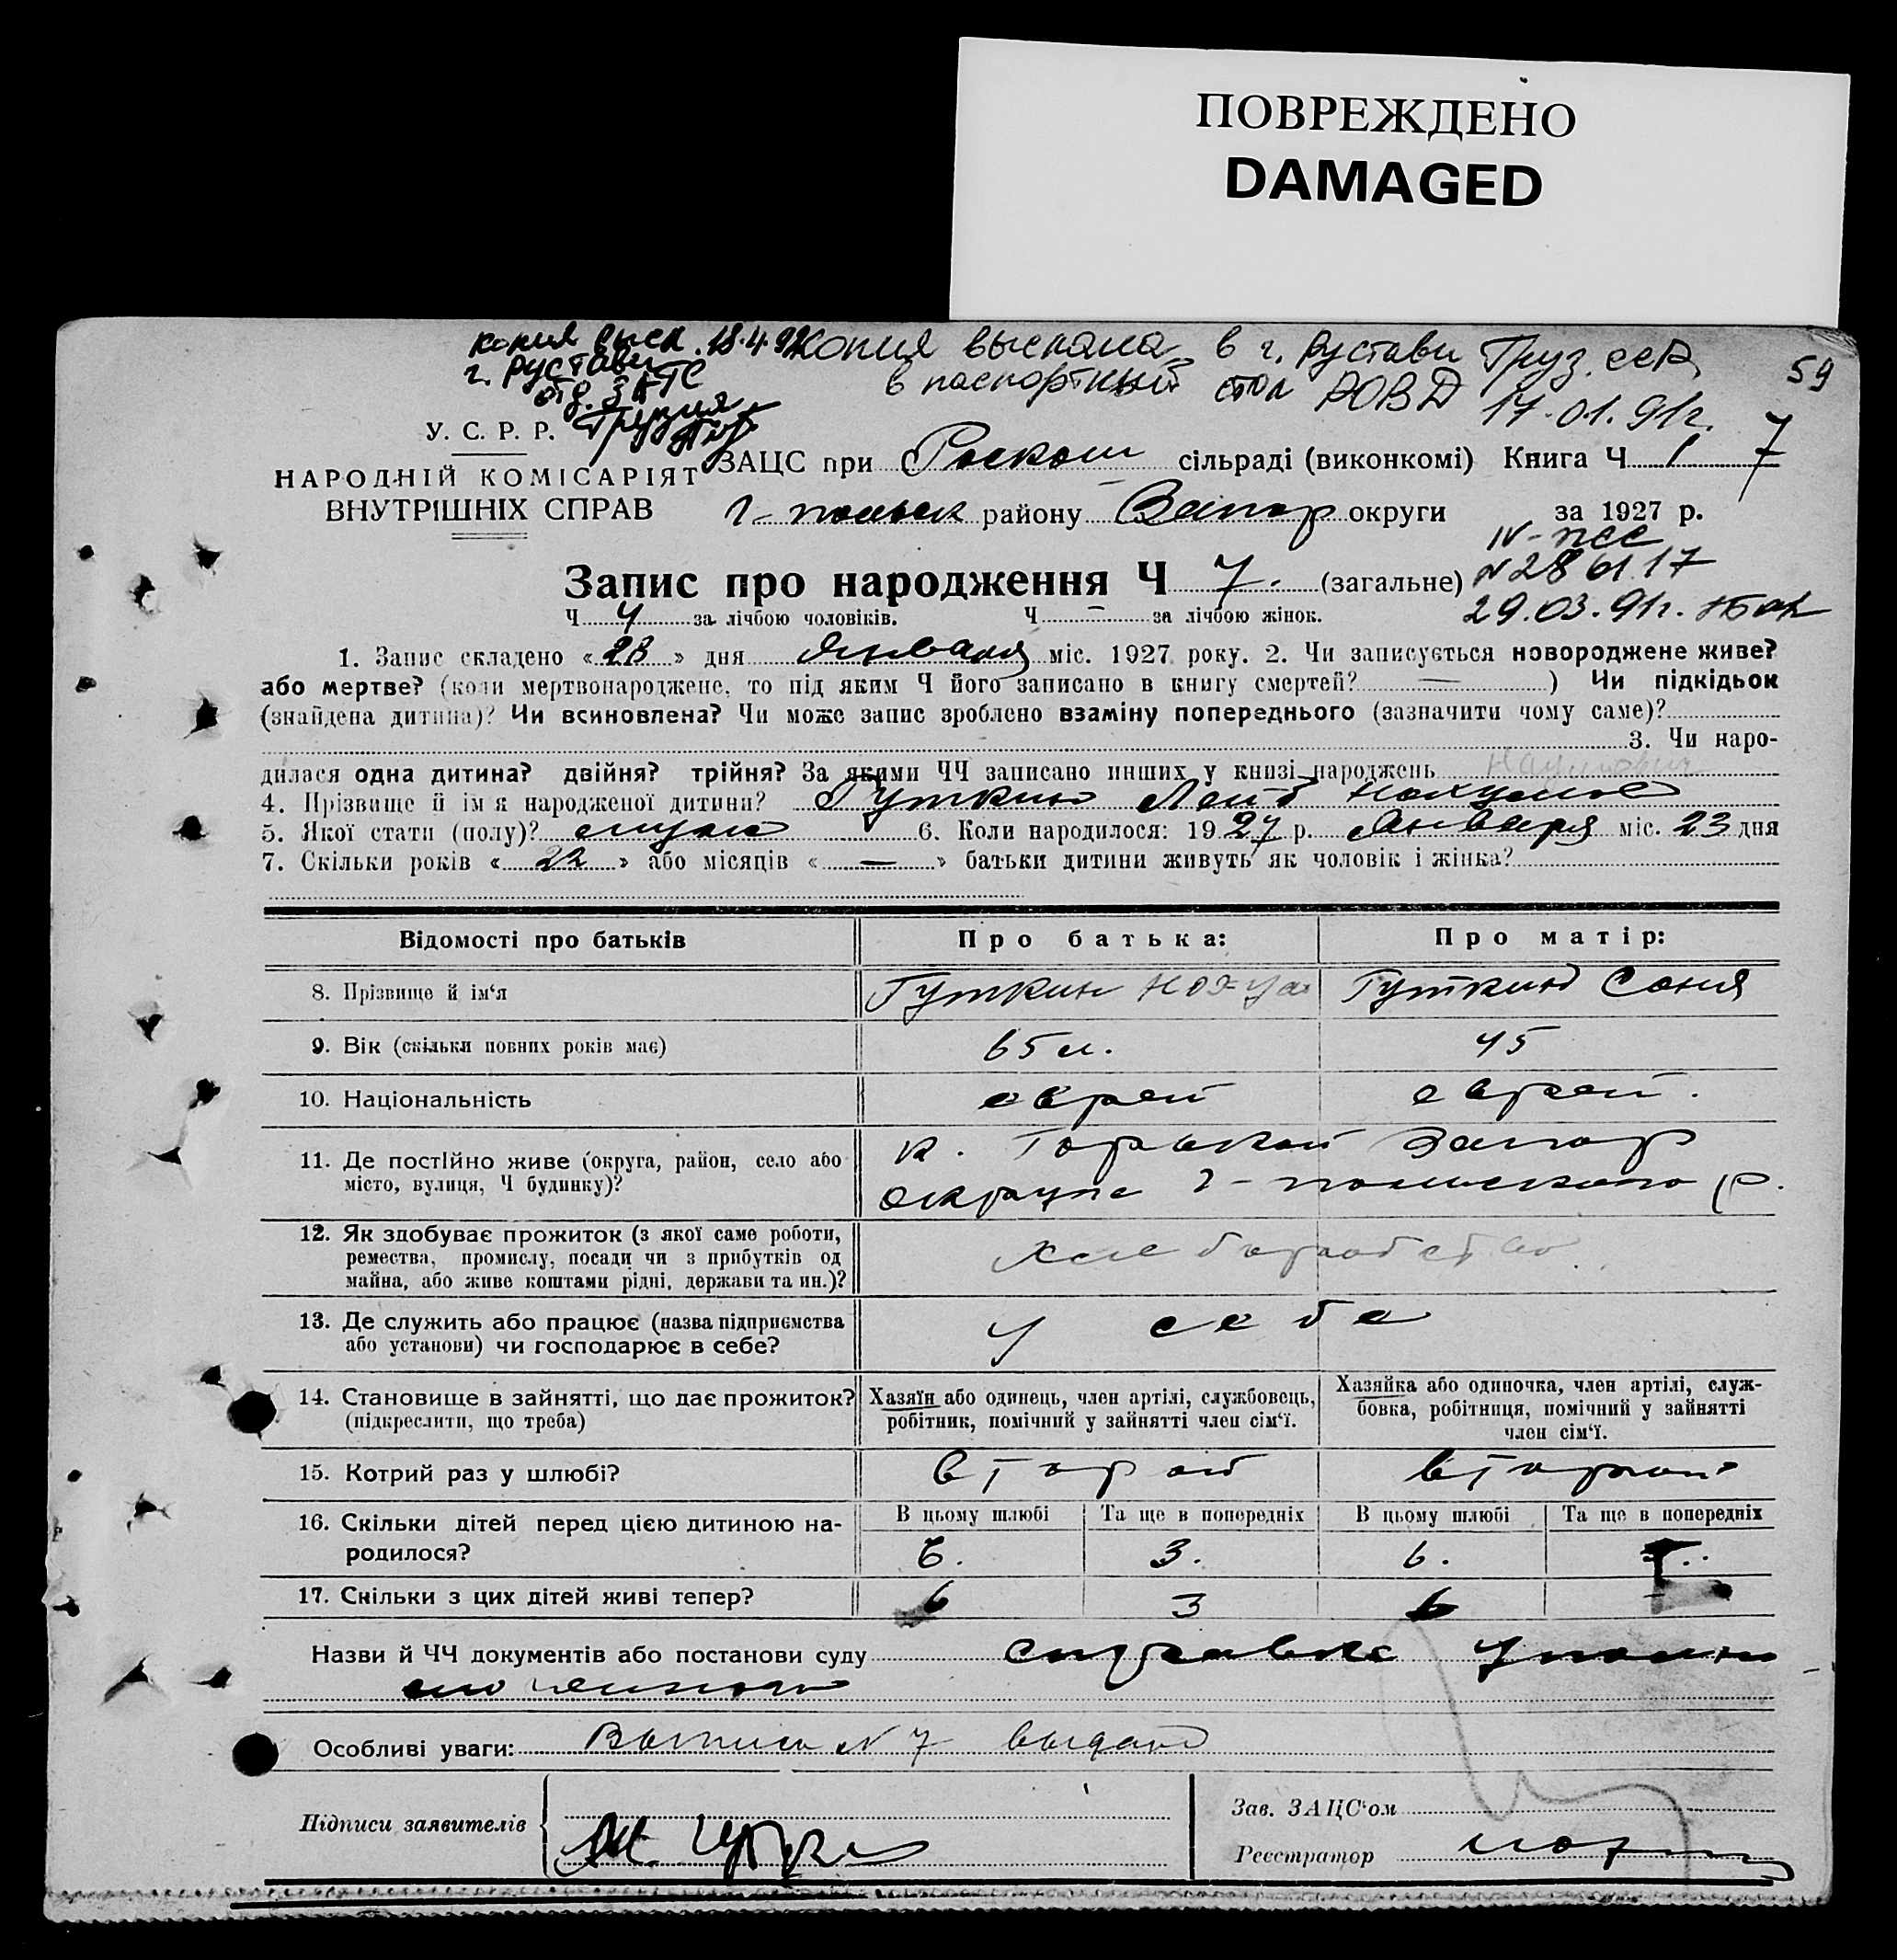 ПОВРЕЖДЕНО
DAMAGED
копия выслана в г. Рустави Груз. ССР
в паспортный стол РОВД
17.01.91г.
59
копия высл. 18.4.92
г. Рустави
отд. ЗАГС
Грузия
У. С. Р. Р.
НАРОДНІЙ КОМІСАРІЯТ
ВНУТРІШНІХ СПРАВ
ЗАЦС при Роскош сільраді (виконкомі) Книга Ч 1 7
г-польск району Запор округи за 1927 р.
IV-ПСС
N 286117
29.03.91г.
Запис про народження Ч 7. (загальне)
Ч 4 за лічбою чоловіків. Ч – за лічбою жінок.
1. Запис складено «28» дня Января міс. 1927 року. 2. Чи записується новороджене живе?
або мертве? (коли мертвонароджене, то під яким Ч його записано в книгу смертей? — ) Чи підкідьок
(знайдена дитина)? Чи всиновлена? Чи може запис зроблено взаміну попереднього (зазначити чому саме)?
3. Чи наро-
дилася одна дитина? двійня? трійня? За якими ЧЧ записано инших у книзі народжень Наумович
4. Прізвище й ім'я народженої дитини? Гуткин Лейб
5. Якої стати (полу)? 6. Коли народилося: 1927 р. Января міс. 23 дня
7. Скільки років «22» або місяців «—» батьки дитини живуть як чоловік і жінка?
Відомості про батьків Про батька: Про матір:
8. Прізвище й ім'я Гуткин Нохум Гуткин Соня
9. Вік (скільки повних років має) 65 л. 45
10. Національність еврей еврей.
11. Де постійно живе (округа, район, село або місто, вулиця, Ч будинку)? к. Горькой Запор
округе г-польского р.
12. Як здобуває прожиток (з якої саме роботи,
ремества, промислу, посади чи з прибутків од
майна, або живе коштами рідні, держави та ин.)? хлеборобство
13. Де служить або працює (назва підприємства
або установи) чи господарює в себе? у себе
14. Становище в зайнятті, що дає прожиток?
(підкреслити, що треба)
Хазяїн або одинець, член артілі, службовець,
робітник, помічний у зайнятті член сім'ї.
Хазяйка або одиночка, член артілі, служ-
бовка, робітниця, помічний у зайнятті
член сім'ї.
15. Котрий раз у шлюбі? второй второй
16. Скільки дітей перед цією дитиною на-
родилося?
В цьому шлюбі Та ще в попередніх В цьому шлюбі Та ще в попередніх
6. 3. 6.
17. Скільки з цих дітей живі тепер? 6 3 6
Назви й ЧЧ документів або постанови суду справка уполно
моченного
Особливі уваги: Выпись N 7 выдана
Підписи заявителів
Зав. ЗАЦС'ом
Реєстратор